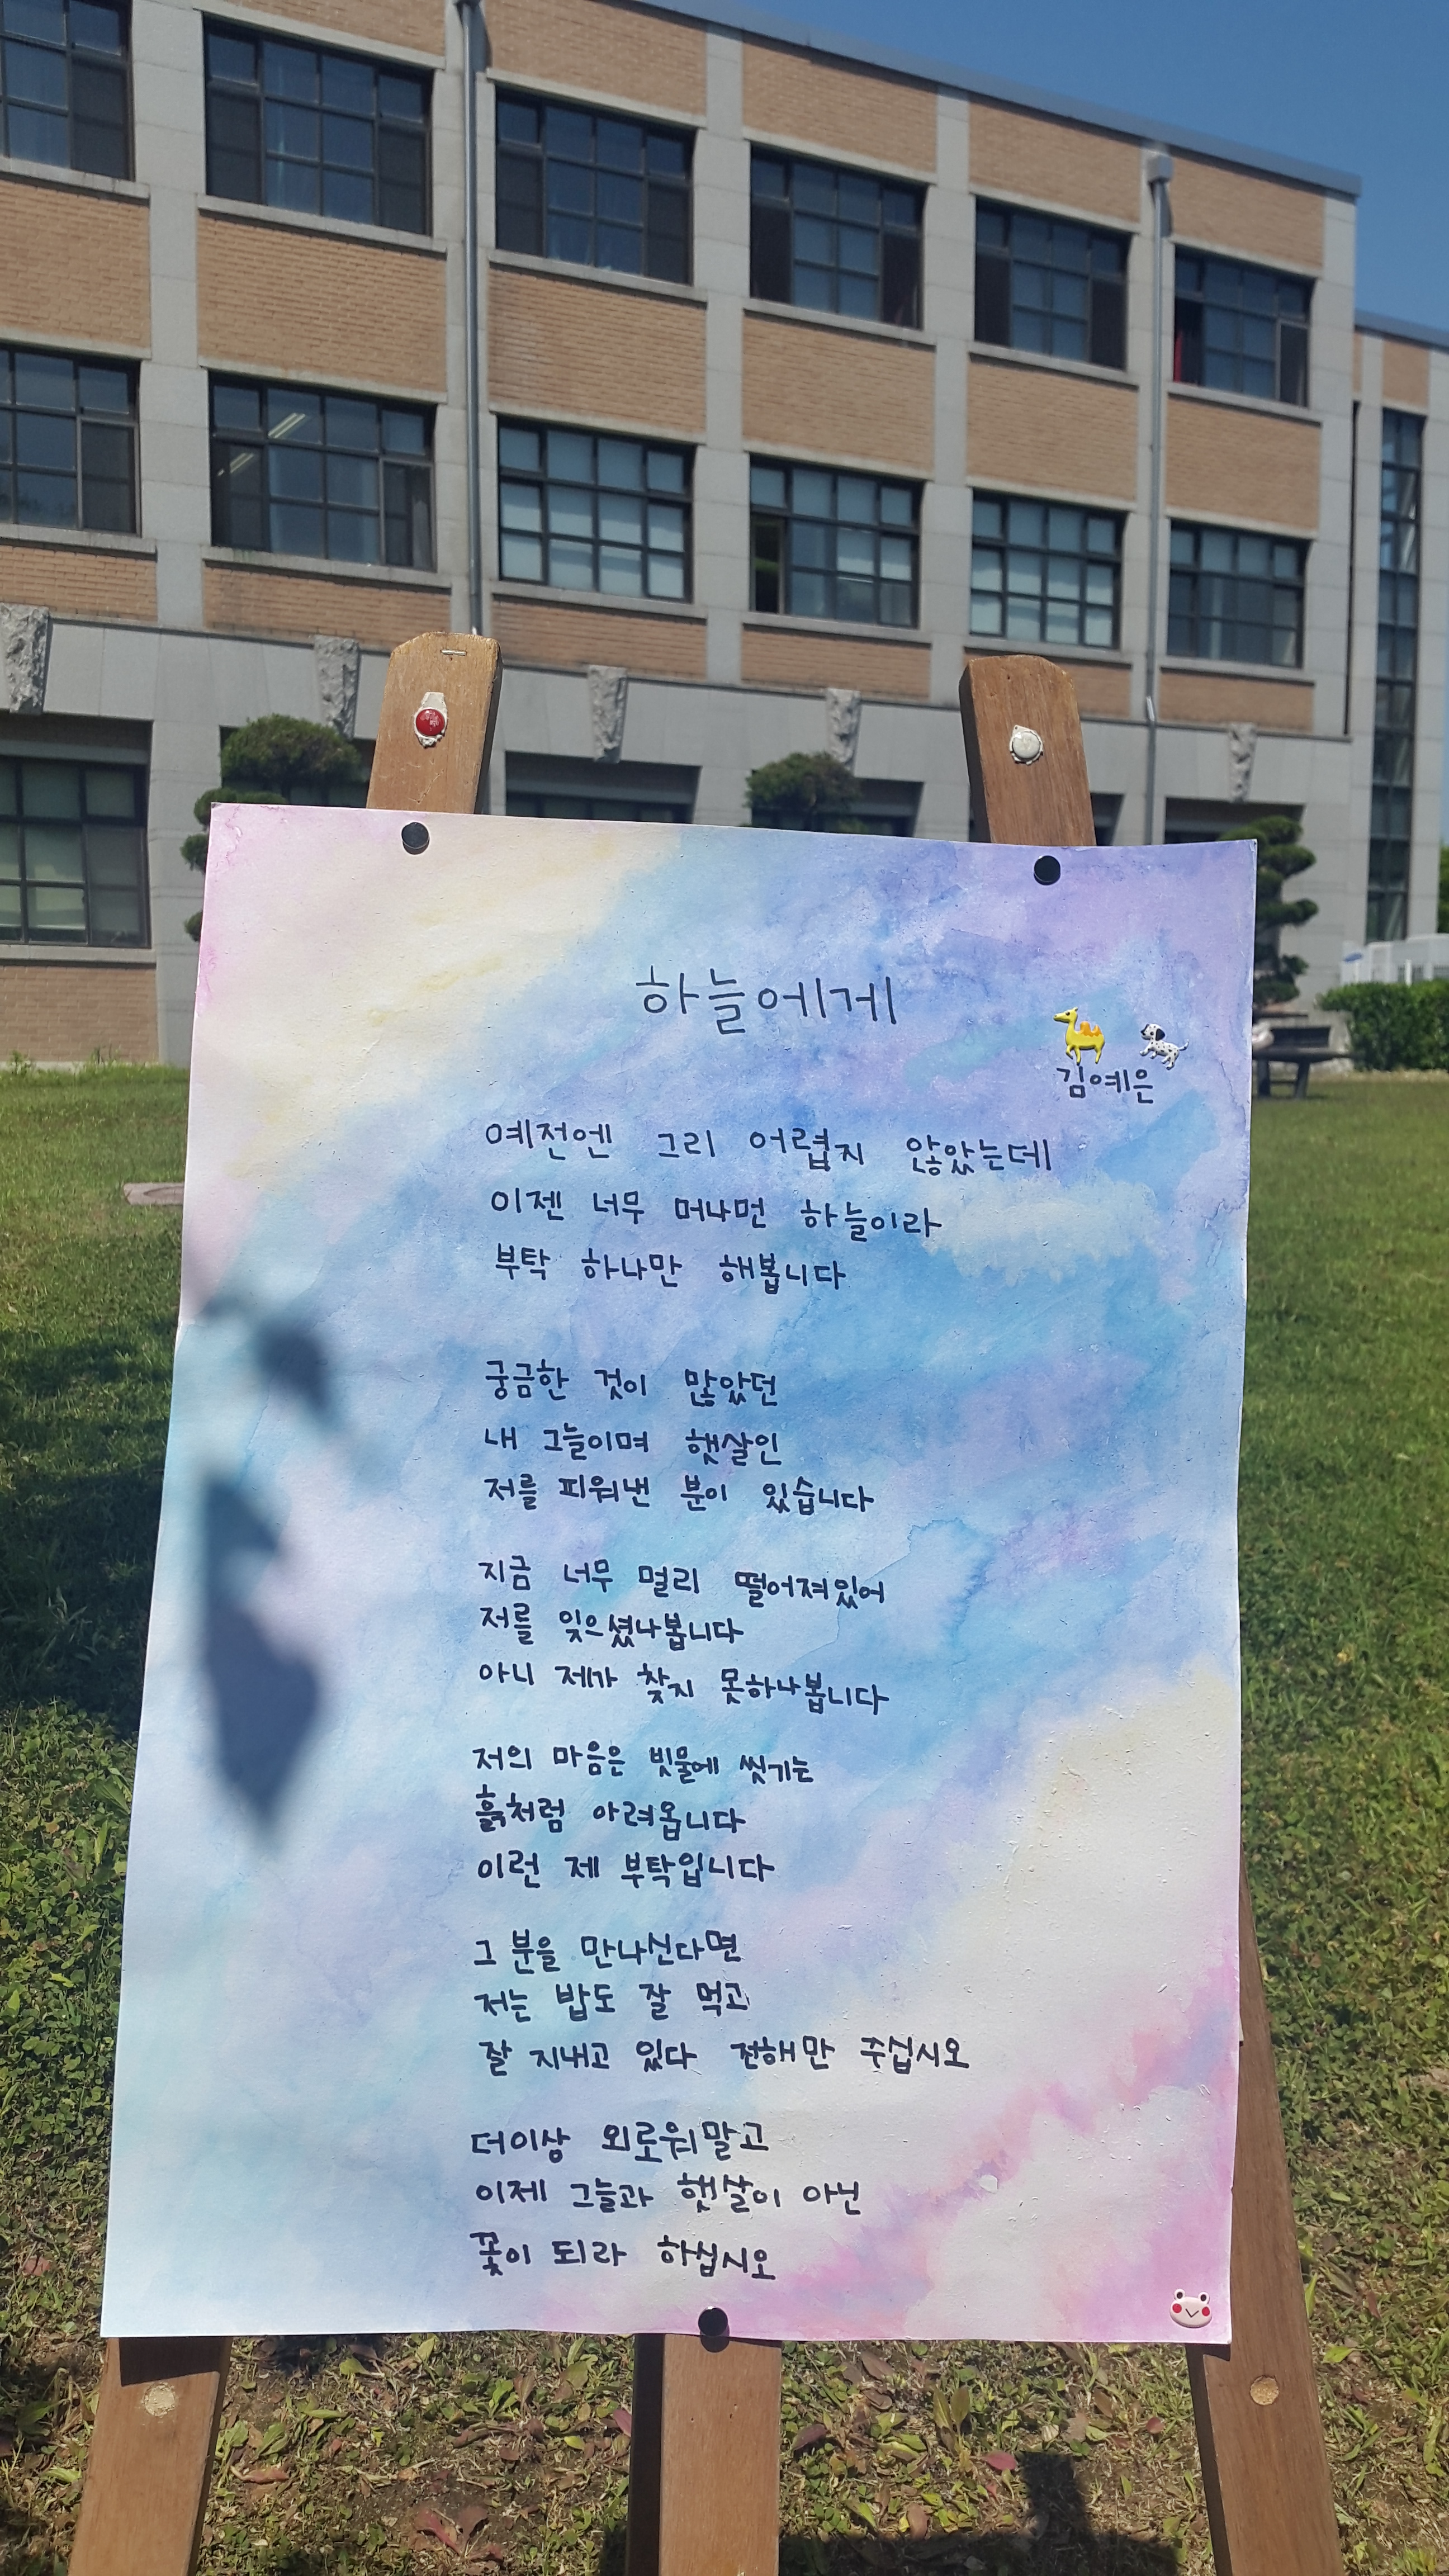 하늘에게
김예은
예전엔 그리 어렵지 않았는데
이젠 너무 머나먼 하늘이라
부탁 하나만 해봅니다
궁금한 것이 많았던
내 그늘이며 햇살인
저를 피워낸 분이 있습니다
지금 너무 멀리 떨어져있어
저를 잊으셨나봅니다
아니 제가 찾지 못하나봅니다
저의 마음은 빗물에 씻기는
흙처럼 아려옵니다
이런 제 부탁입니다
그 분을 만나신다면
저는 밥도 잘 먹고
잘 지내고 있다 전해만 주십시오
더이상 외로워말고
이제 그늘과 햇살이 아닌
꽃이 되라 하십시오